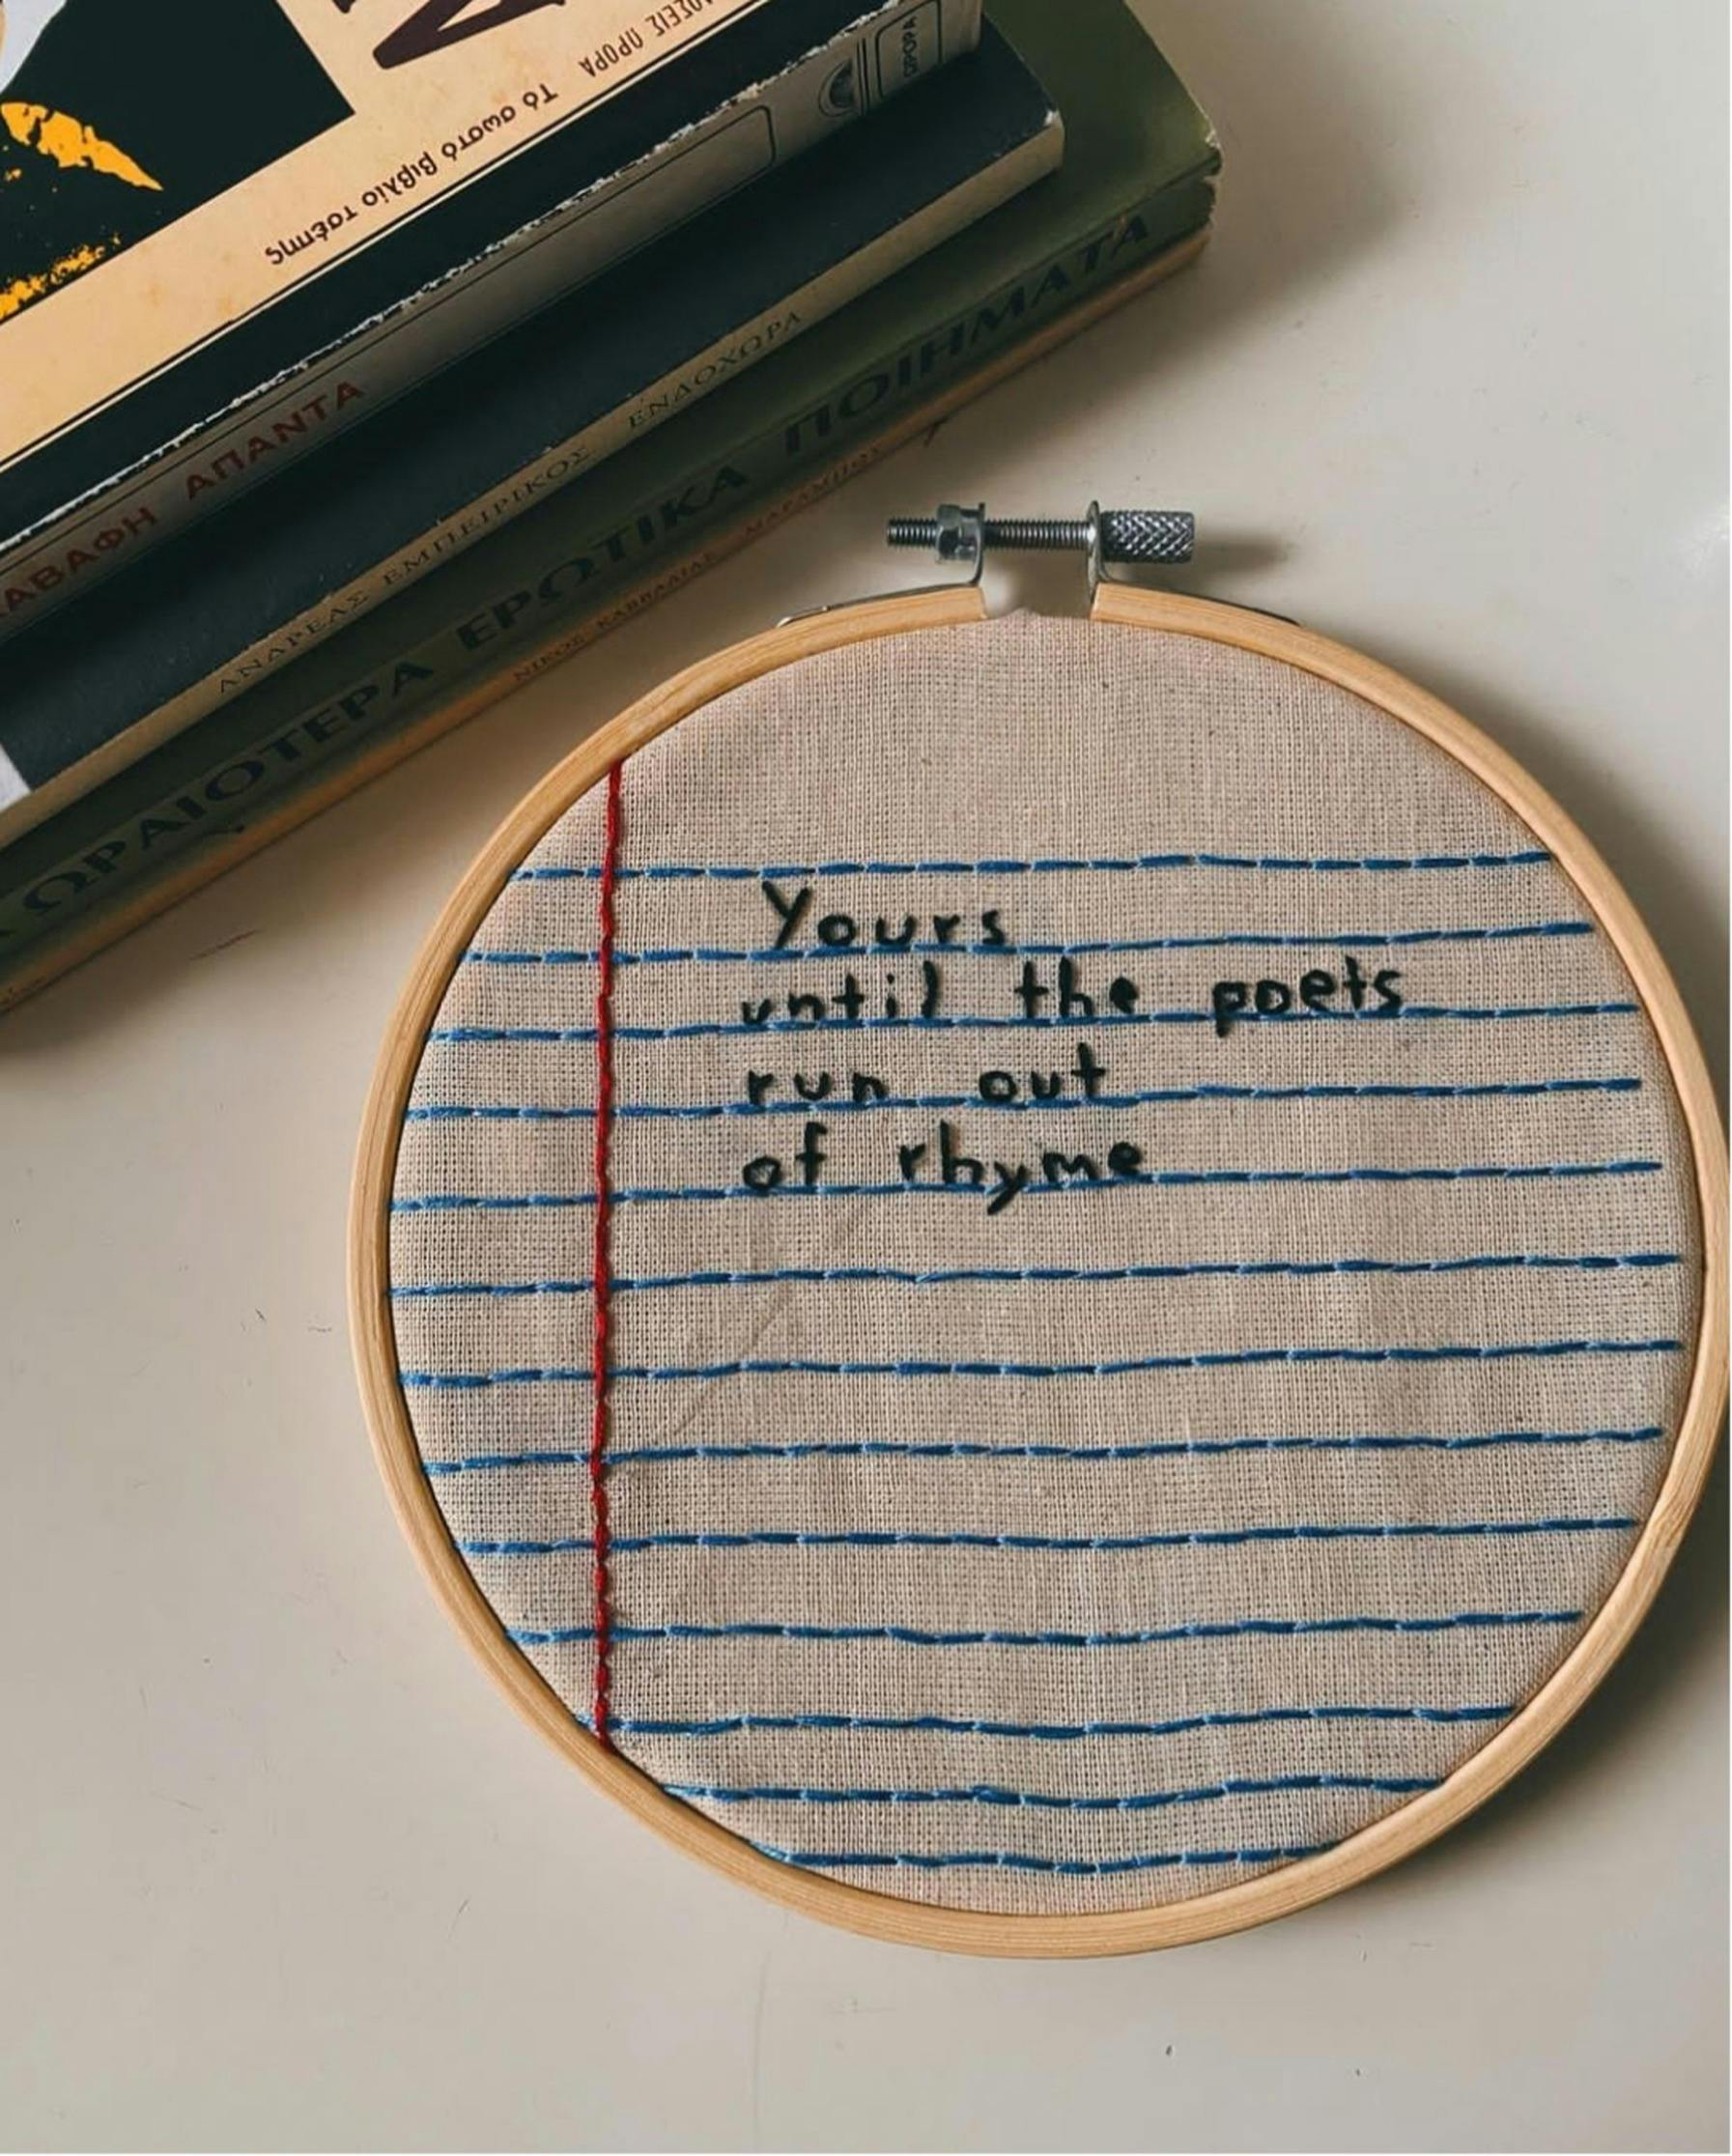 ΔΟΣΕΙΣ ΠΡΟΡΑ
Τό σωστό βιβλίο τσέπης
ΑΒΑΦΗ ΑΠΑΝΤΑ
ΑΝΔΡΕΑΣ ΕΜΠΕΙΡΙΚΟΣ ΕΝΔΟΧΩΡΑ
ΩΡΑΙΟΤΕΡΑ ΕΡΩΤΙΚΑ ΠΟΙΗΜΑΤΑ
ΝΙΚΟΣ ΚΑΒΒΑΔΙΑΣ ΜΑΡΑΜΠΟΥ
Yours
until the poets
run out
of rhyme